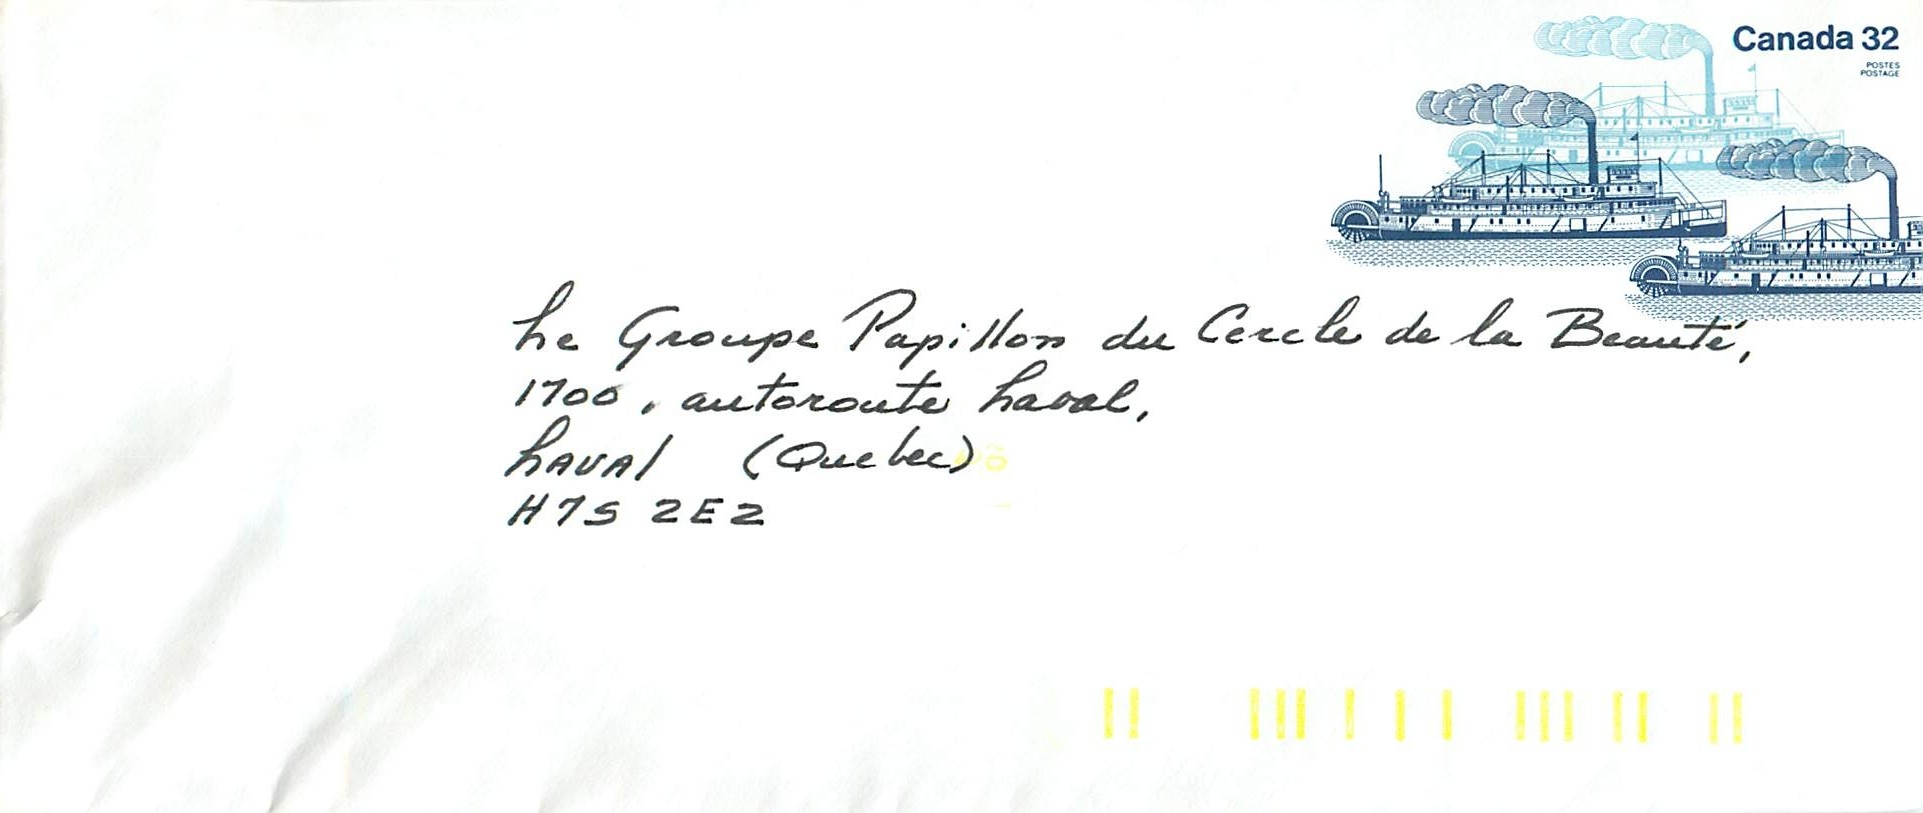 Canada 32
POSTES
POSTAGE
Le Groupe Papillon du Cercle de la Beauté,
1700, autoroute Laval,
LAVAL (Quebec)
H7S 2E2